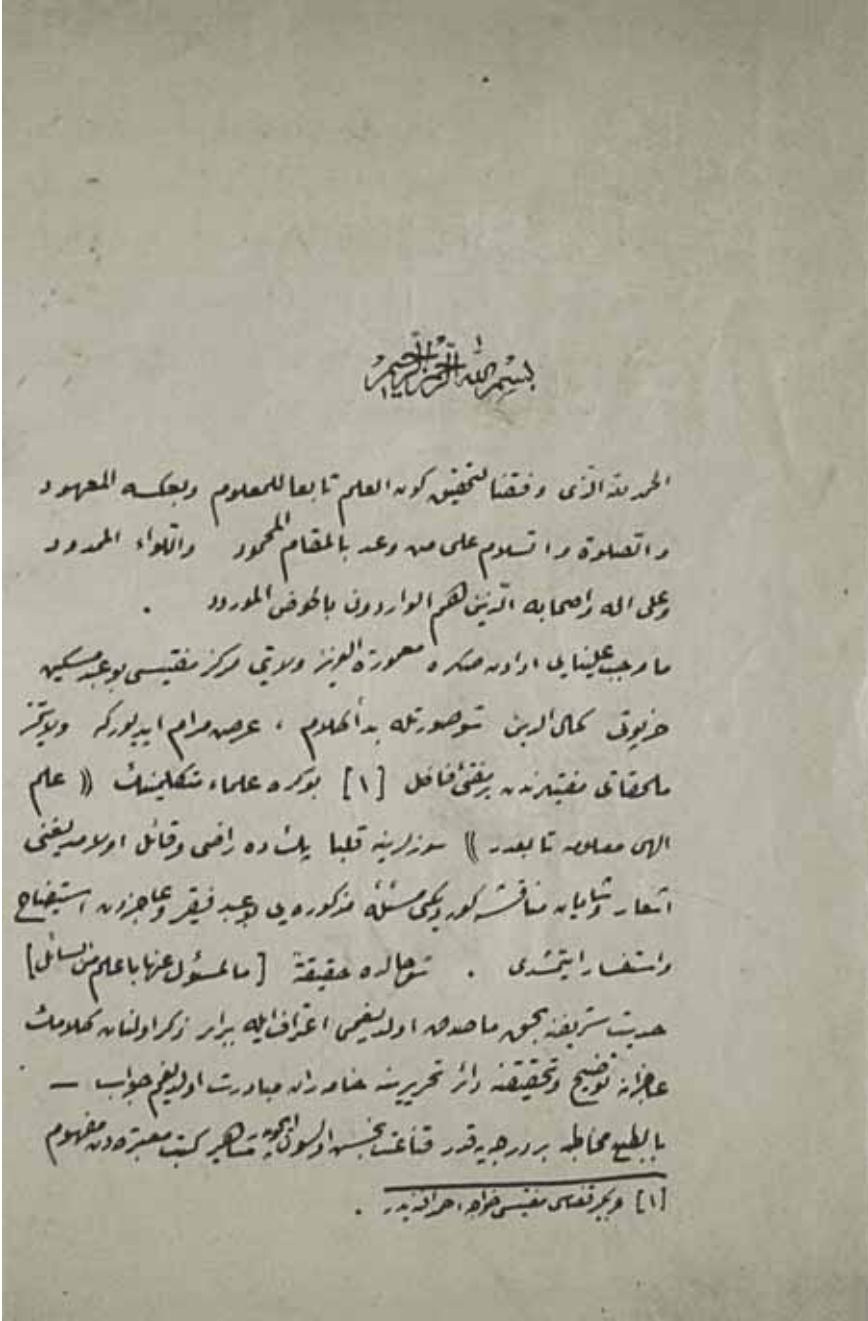 بسم الله الرحمن الرحيم
الحمد لله الذى وفقنا لتحقيق كون العلم تابعا للمعلوم وبعكسه المعهود
والصلوة والسلام على من وعد بالمقام المحمود واللواء الممدود
وعلى اله واصحابه الذين هم الواردون بالحوض المورود .
ما وجب علينايى ادادن صكره معمورة العزيز ولايتى مركز مفتيسى بو عبد مسكين
خرپوتى كمال الدين شو صورتله بدأ كلام ، عرض مرام ايديوركه ولايتمز
ملحقاتى مفتيلرندن بر مفتئ فاضل [١] بو كره علماء متكلمينك (( علم
الهى معلومه تابعدر )) سوزلرينه قلبا پك ده راضى وقائل اولامديغنى
اشعار وشايان مناقشه كورديكى مسئلهٔ مذكوره يى بو عبد فقير وعاجزدن استيضاح
واستفسار ايتمشدى . شو حالده حقيقة [ ما المسئول عنها باعلم من السائل ]
حديث شريفنه بحق ما صدق اولديغمى اعتراف ايله برابر ذكر اولنان كلامك
عاجزانه توضيح وتحقيقنه دائر تحريرينه خامه ران مبادرت اولديغم جواب —
بالطبع مخاطبه بر درجه يه قدر قناعت بخش اولسون ايچون مشاهير كتب معتبره دن مفهوم
[١] مفتيسى خواجه احمد افنديدر .